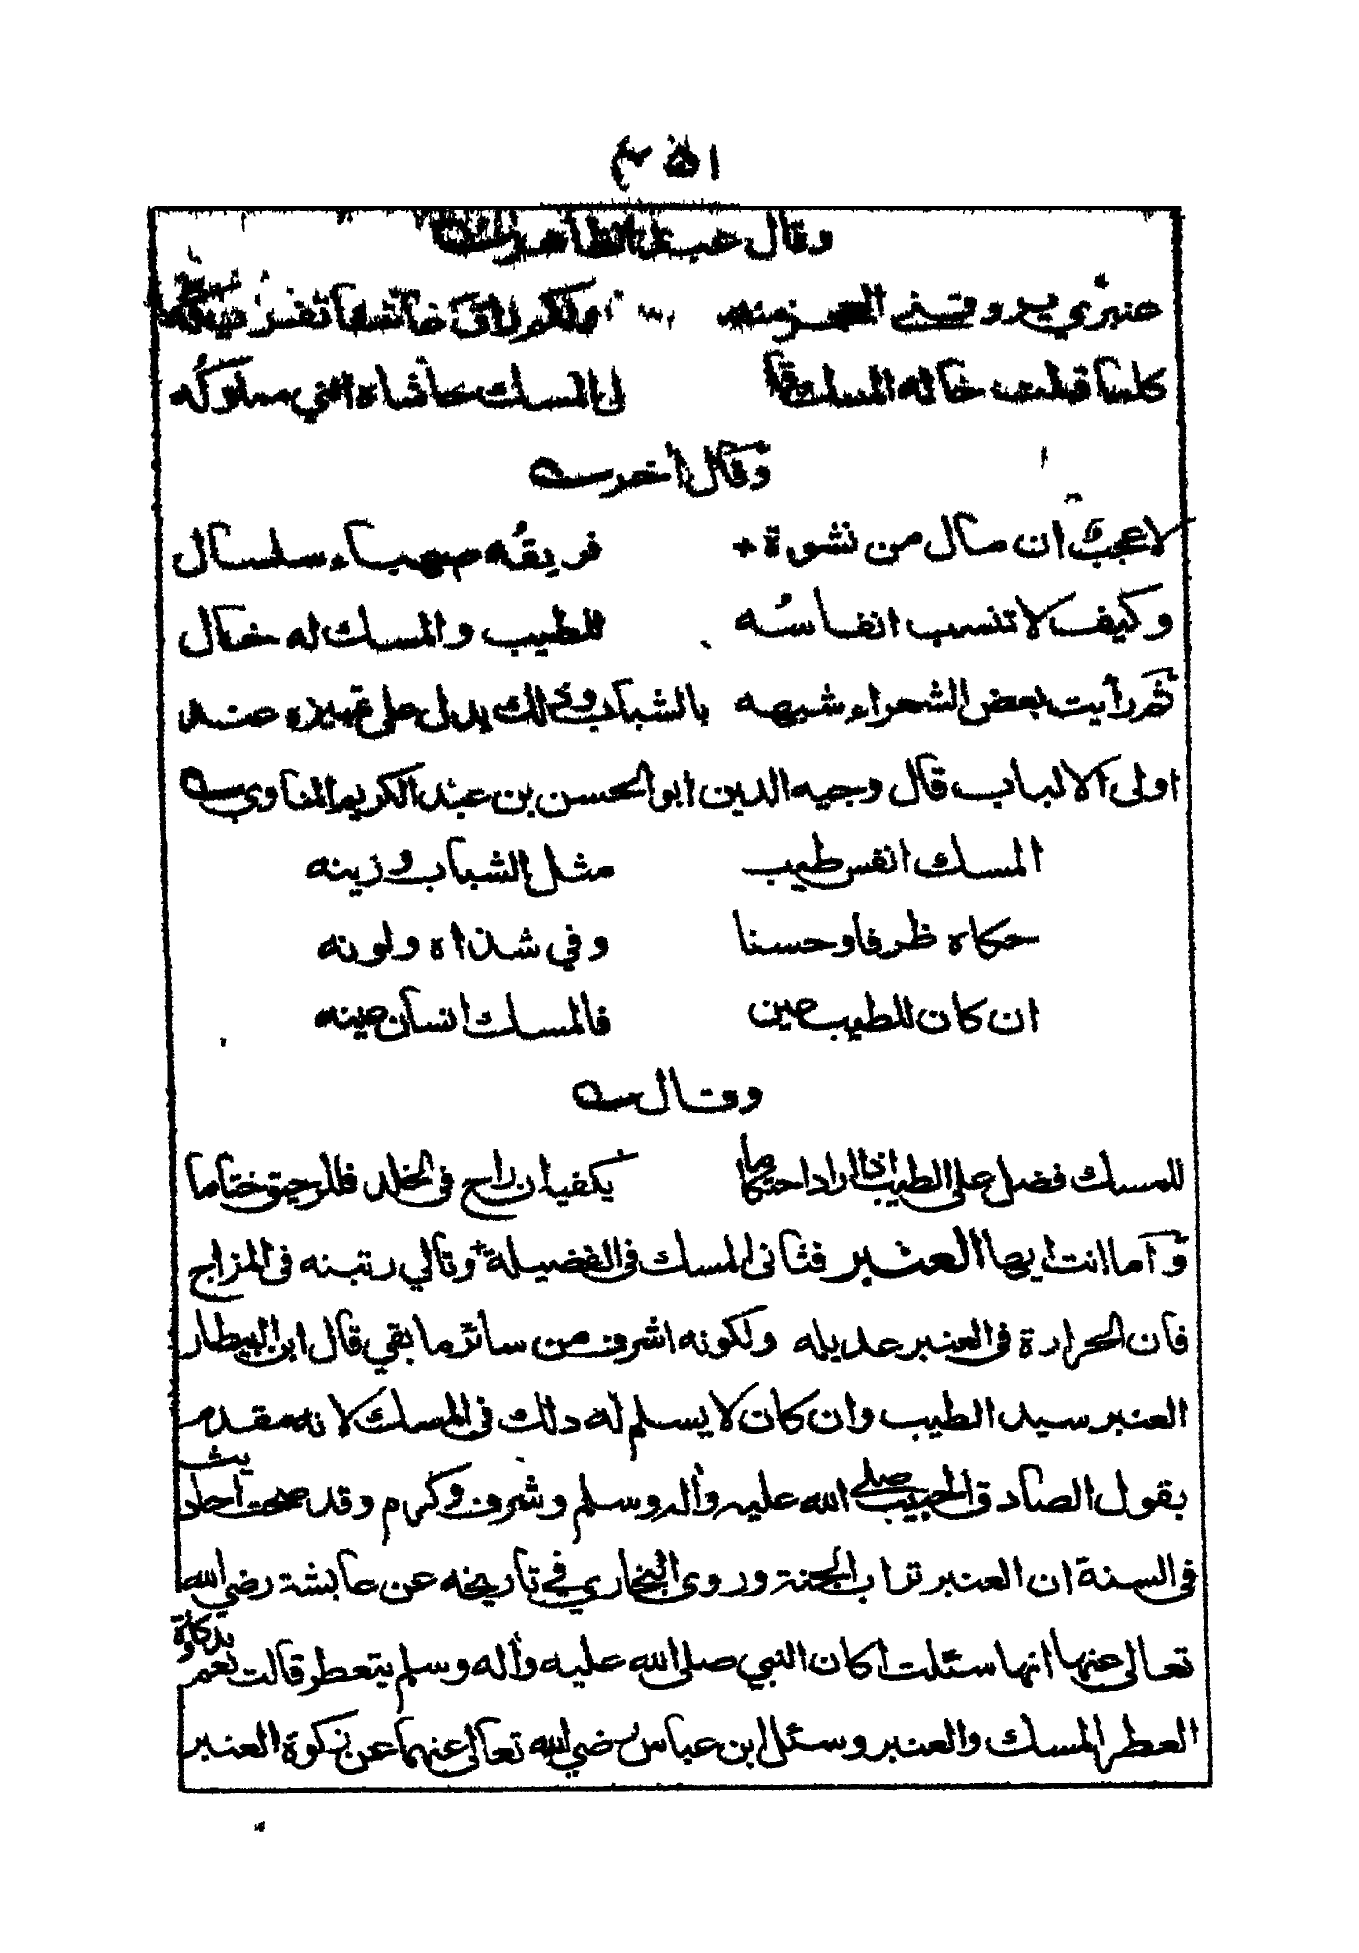 وقال عبد الظاهر
عنبري منه
كلما قبلت خاله المسك قا ل المسك حاشاه انني مملوكه
وقال أخر
لا عجب ان مال من نشوة فريقه صهباء سلسال
وكيف لا تنسب انفاسه للطيب والمسك له خال
ثم رأيت بعض الشعراء شبهه بالشباب وذلك يدل على تميزه عند
اولى الالباب قال وجيه الدين ابو الحسن بن عبد الكريم المناوي
المسك انفس طيب مثل الشباب وزينه
حكاه ظرفا وحسنا وفي شذاه ولونه
ان كان للطيب عين فالمسك انسان عينه
وقال
للمسك فضل على الطيب اذا راد احتكاما يكفيه ان راح في الخلد فللرحيق ختاما
وأما انت ايها العنبر فثاني المسك في الفضيلة وتالي رتبته في المزاج
فان الحرارة في العنبر عديله ولكونه اشرف من سائر ما بقي قال ابن البيطار
العنبر سيد الطيب وان كان لا يسلم له ذلك في المسك لانه مقدم
بقول الصادق الحبيب صلى الله عليه وأله وسلم وشرف وكرم وقد صحت احاديث
في السنة ان العنبر تراب الجنة وروى البخاري في تاريخه عن عايشة رضي الله
تعالى عنها انها سئلت أكان النبي صلى الله عليه وأله وسلم يتعطر قالت نعم بذكاوة
العطر المسك والعنبر وسئل ابن عباس رضي الله تعالى عنهما عن زكوة العنبر